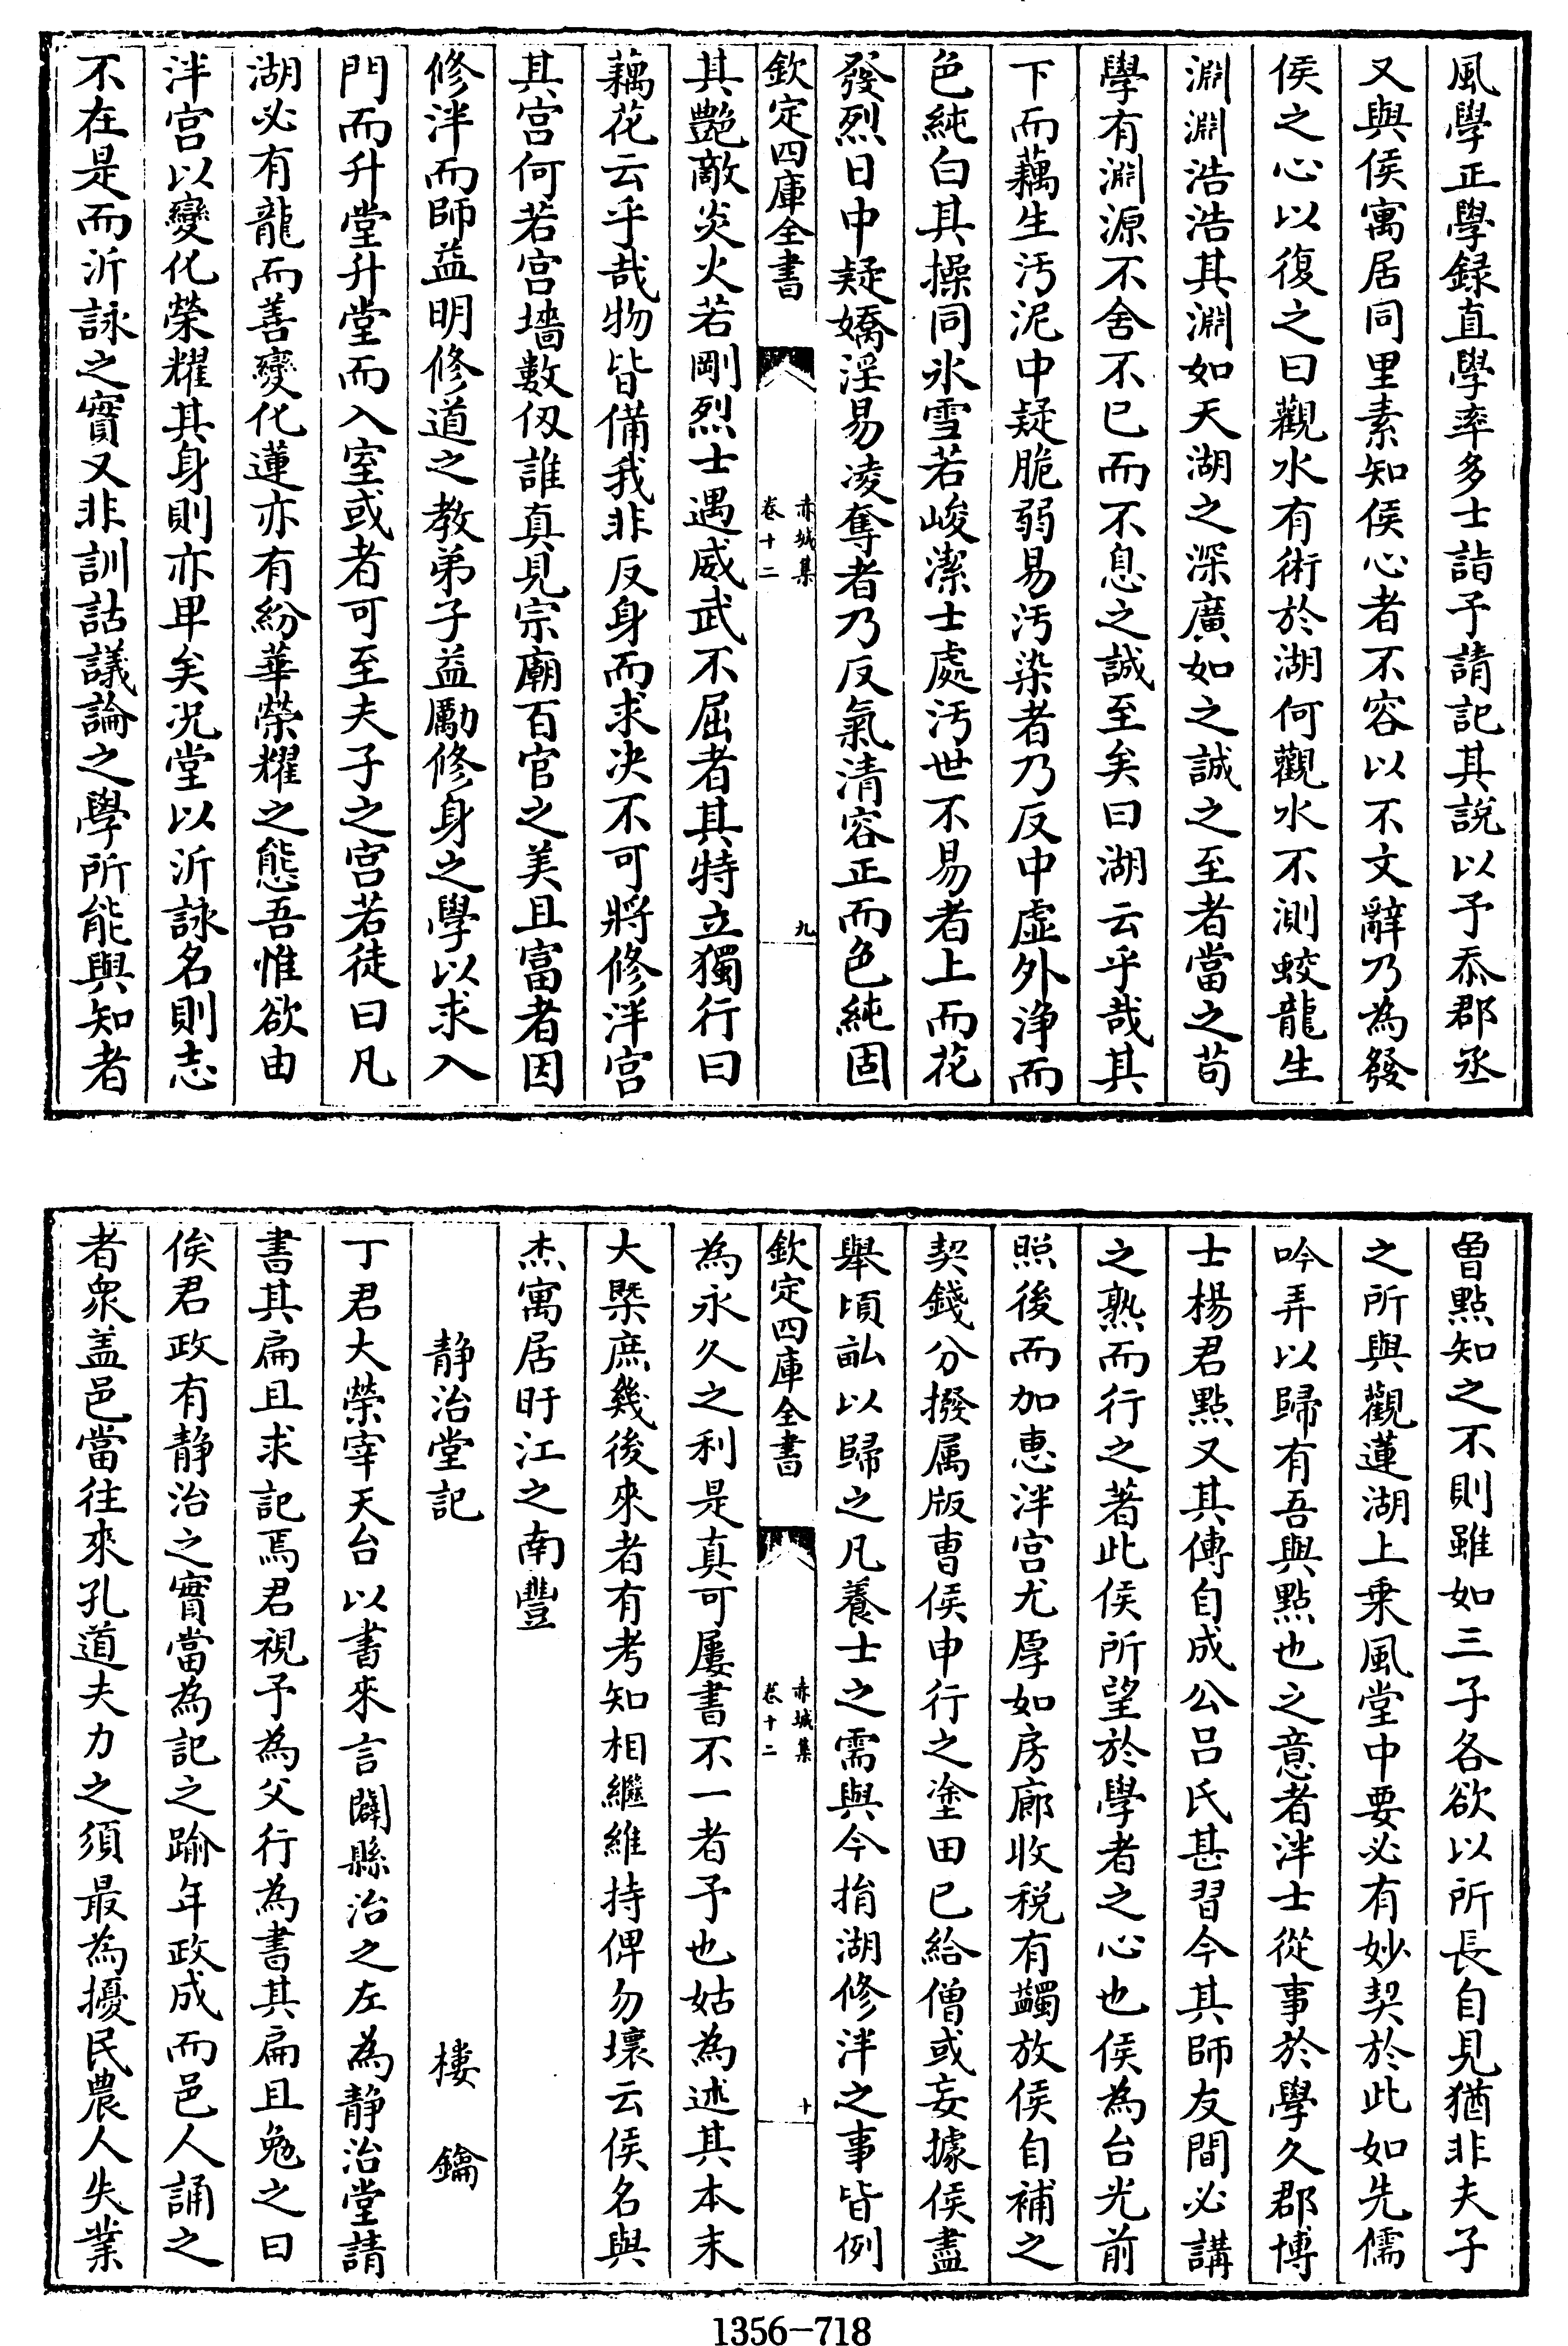 風學正學録直學率多士詣予請記其說以予忝郡丞
又與侯寓居同里素知侯心者不容以不文辭乃為發
侯之心以復之曰觀水有術於湖何觀水不測蛟龍生
淵淵浩浩其淵如天湖之深廣如之誠之至者當之茍
學有淵源不舍不已而不息之誠至矣曰湖云乎哉其
下而藕生汚泥中疑脆弱易汚染者乃反中虚外浄而
色純白其操同氷雪若峻潔士處汚世不易者上而花
發烈日中疑嬌淫易凌奪者乃反氣清容正而色純固
欽定四庫全書
赤城集
卷十二
九
其艷敵炎火若剛烈士遇威武不屈者其特立獨行曰
藕花云乎哉物皆備我非反身而求决不可將修泮宫
其宫何若宫墻數仭誰真見宗廟百官之美且富者因
修泮而師益明修道之教弟子益勵修身之學以求入
門而升堂升堂而入室或者可至夫子之宫若徒曰凡
湖必有龍而善變化蓮亦有紛華榮耀之態吾惟欲由
泮宫以變化榮耀其身則亦卑矣况堂以沂詠名則志
不在是而沂詠之實又非訓詁議論之學所能與知者
曾點知之不則雖如三子各欲以所長自見猶非夫子
之所與觀蓮湖上乗風堂中要必有妙契於此如先儒
吟弄以歸有吾與點也之意者泮士從事於學久郡博
士楊君點又其傳自成公吕氏甚習今其師友間必講
之熟而行之著此侯所望於學者之心也侯為台光前
照後而加惠泮宫尤厚如房廊收税有蠲放侯自補之
契錢分撥屬版曹侯申行之塗田已給僧或妄據侯盡
舉頃畝以歸之凡養士之需與今捐湖修泮之事皆例
欽定四庫全書
赤城集
卷十二
十
為永久之利是真可屢書不一者予也姑為述其本末
大槩庶幾後來者有考知相繼維持俾勿壞云侯名與
杰寓居旴江之南豐
静治堂記
樓鑰
丁君大榮宰天台以書來言闢縣治之左為静治堂請
書其扁且求記焉君視予為父行為書其扁且勉之曰
俟君政有静治之實當為記之踰年政成而邑人誦之
者衆盖邑當往來孔道夫力之須最為擾民農人失業
1356-718